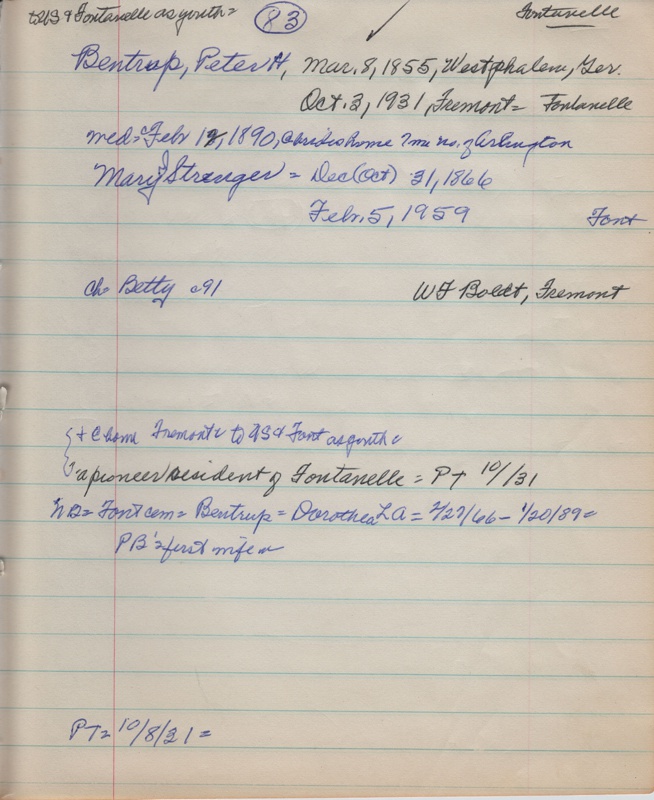 to US & Fontanelle as youth =
83
Fontanelle
Bentrup, Peter H, Mar. 8, 1855, Westphalen, Ger.
Oct. 3, 1931, Fremont = Fontanelle
med = Feb 12, 1890, @ brides home 7 mi no. of Arlington
Mary J Stranger = Dec (Oct) 31, 1866
Feb. 5, 1959 Font
ch = Betty c91 WF Boldt, Fremont
+ @ home Fremont = to US & Font as youth =
"a pioneer resident of Fontanelle = PT 10/ /31
NB = Font cem = Bentrup = Dorothea L A = 2/27/66 - 1/20/89 =
PB's first wife =
PT = 10/8/31 =